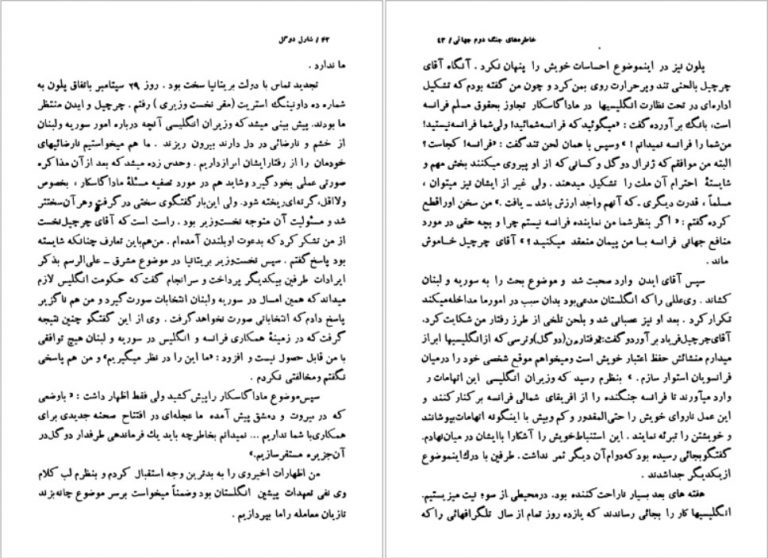 ۴۲ / شارل دوگل
ما ندارد .
تجدید تماس با دولت بریتانیا سخت بود . روز ۲۹ سپتامبر باتفاق پلون به
شماره ده داونینگ استریت (مقر نخست وزیری ) رفتم . چرچیل و ایدن منتظر
ما بودند. پیش بینی میشد که وزیران انگلیسی آنچه درباره امور سوریه ولبنان
از خشم و نارضائی در دل دارند بیرون ریزند . ما هم میخواستیم نارضائیهای
خودمان را از رفتارایشان ابرازداریم . وحدس زده میشد که بعد ازآن مذاکره
صورتی عملی بخودگیرد وشاید هم در مورد تصفیه مسئلهٔ ماداگاسکار، بخصوص
ولااقل، گرته‌ای ریخته شود. ولی این بارگفتگوی سختی در گرفت وهر آن سختتر
شد و مسئولیت آن متوجه نخست وزیر بود . راست است که آقای چرچیل نخست
از من تشکر کرد که بدعوت او بلندن آمده‌ام . من هم باین تعارف چنانکه شایسته
بود پاسخ گفتم . سپس نخست وزیر بریتانیا در موضوع مشرق ـ علی الرسم بذکر
ایرادات طرفین بیکدیگر پرداخت و سرانجام گفت که حکومت انگلیس لازم
میداند که همین امسال در سوریه ولبنان انتخابات صورت گیرد و من هم ناگزیر
پاسخ دادم که انتخاباتی صورت نخواهد گرفت . وی از این گفتگو چنین نتیجه
گرفت که در زمینهٔ همکاری فرانسه و انگلیس در سوریه و لبنان هیچ توافقی
با من قابل حصول نیست و افزود : «ما این را در نظر میگیریم» و من هم پاسخی
نگفتم ومخالفتی نکردم .
سپس موضوع ماداگاسکار را پیش کشید ولی فقط اظهار داشت : « باوضعی
که در بیروت و دمشق پیش آمده ما عجله‌ای در افتتاح صحنه جدیدی برای
همکاری با شما نداریم ... نمیدانم بخاطرچه باید یك فرماندهی طرفدار دوگل در
آن جزیره مستقر سازیم.»
من اظهارات اخیروی را به بدترین وجه استقبال کردم و بنظرم لب کلام
وی نفی تعهدات پیشین انگلستان بود وضمناً میخواست برسر موضوع چانه بزند
تازیان معامله راما بپردازیم .
خاطره‌های جنگ دوم جهانی / ۴۳
پلون نیز در اینموضوع احساسات خویش را پنهان نکرد . آنگاه آقای
چرچیل بالحنی تند وپرحرارت روی بمن کرد و چون من گفته بودم که تشکیل
اداره‌ای در تحت نظارت انگلیسیها در ماداگاسکار تجاوز بحقوق مسلم فرانسه
است، بانگ بر آورده گفت : «میگوئید که فرانسه شمائید! ولی شما فرانسه نیستید!
من شما را فرانسه نمیدانم ! » وسپس با همان لحن تند گفت: «فرانسه! کجاست ؟
البته من موافقم که ژنرال دوگل و کسانی که از او پیروی میکنند بخش مهم و
شایستهٔ احترام آن ملت را تشکیل میدهند . ولی غیر از ایشان نیز میتوان ،
مسلماً ، قدرت دیگری ـ که آنهم واجد ارزش باشد ـ یافت .» من سخن اورا قطع
کرده گفتم : «اگر بنظر شما من نماینده فرانسه نیستم چرا و بچه حقی در مورد
منافع جهانی فرانسه بـا من پیمان منعقد میکنید !؟ » آقای چرچیل خاموش
ماند .
سپس آقای ایدن وارد صحبت شد و موضوع بحث را به سوریه و لبنان
کشاند . وی عللی را که انگلستان مدعی بود بدان سبب در امور ما مداخله میکند
تکرار کرد . بعد او نیز عصبانی شد و بلحن تلخی از طرز رفتار من شکایت کرد.
آقای چرچیل فریاد بر آورد گفت: «رفتار من (دوگل) و ترسی که از انگلیسیها ابراز
میدارم منشائش حفظ اعتبار خویش است ومیخواهم موقع شخصی خود را درمیان
فرانسویان استوار سازم . » بنظرم رسید که وزیران انگلیسی این اتهامات را
وارد میآورند تا فرانسه جنگنده را از افریقای شمالی فرانسه برکنار کنند و
این عمل ناروای خویش را حتی‌المقدور و کم وبیش با اینگونه اتهامات بپوشانند
و خویشتن را تبرئه نمایند . این استنباط خویش را آشکارا با ایشان در میان نهادم.
گفتگو بجائی رسیده بود که دوام آن دیگر ثمر نداشت . طرفین با درك اینموضوع
ازیکدیگر جدا شدند .
هفته های بعد بسیار ناراحت کننده بود. در محیطی از سوء نیت میزیستیم.
انگلیسیها کار را بجائی رساندند که یازده روز تمام از سال تلگرافهائی را که